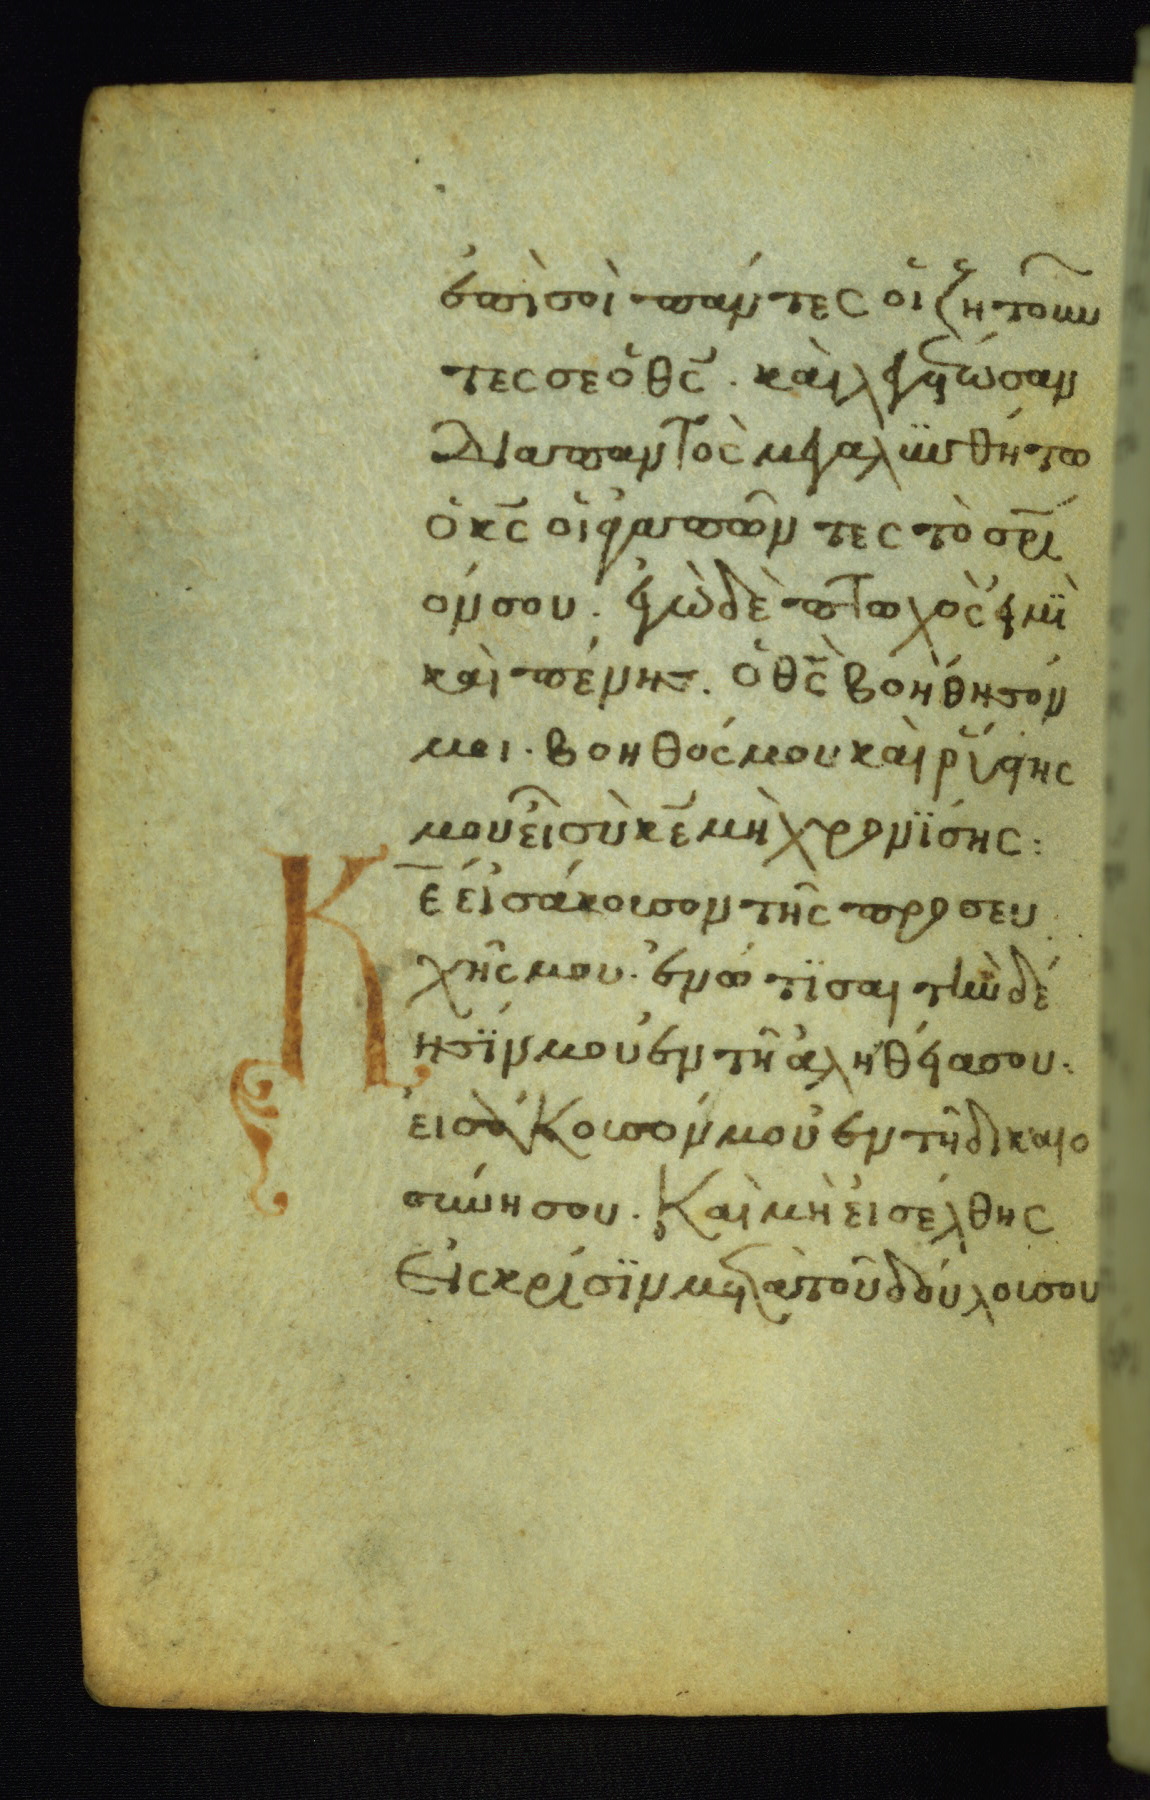 ἐπὶ σοὶ πάντες οἱ ζητοῦν
τες σε ὁ θς̅. καὶ λεγέτωσαν
Διαπαντὸς μεγαλυνθήτω
ὁ κς̅ οἱ ἀγαπῶντες τὸ σρί
όν σου. ἐγὼ δὲ πτωχὸς εἰμῒ
καὶ πένης. ὁ θς̅ βοήθησόν
μοι. βοηθός μου καὶ ῥύστης
μου εἶ σὺ κε̅ μὴ χρονΐσης:
Κε̅ εἰσάκουσον τῆς προσευ
χῆς μου. ἐνώτϊσαι τὴν δέ
ησΐν μου ἐν τῇ ἀληθείᾳ σου.
εἰσάκουσόν μου ἐν τῇ δικαιο
σύνη σου. Καὶ μὴ εἰσέλθης
Εἰς κρίσϊν μετὰ τοῦ δούλου σου